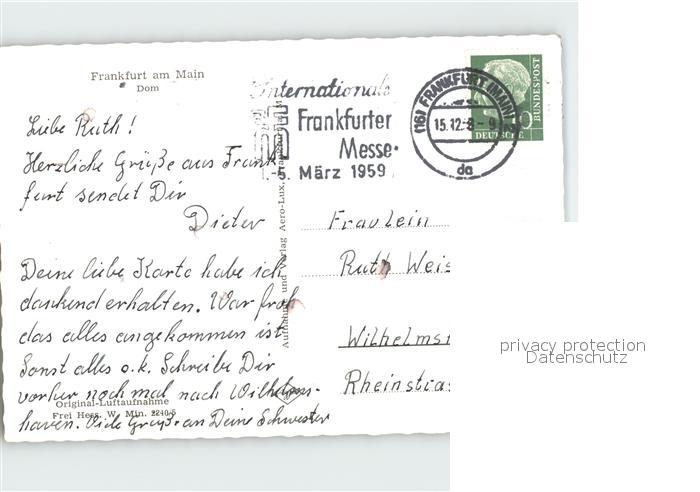 Frankfurt am Main
Dom
Internationale
Frankfurter
Messe
-5. März 1959
(16) FRANKFURT (MAIN)
15.12.
da
DEUTSCHE
BUNDESPOST
Liebe Ruth!
Herzliche Grüße aus Frank-
furt sendet Dir
Dieter
Deine liebe Karte habe ich
dankend erhalten. War froh
das alles angekommen ist
Sonst alles o.k. Schreibe Dir
vorher noch mal nach Wilhelms-
haven. Viele Grüße an Deine Schwester
Original-Luftaufnahme
Frei Hess. W. Min. 2240/5
Verlag Aero-Lux,
Fräulein
Ruth Weis
Wilhelmsh
Rheinstras
privacy protection
Datenschutz